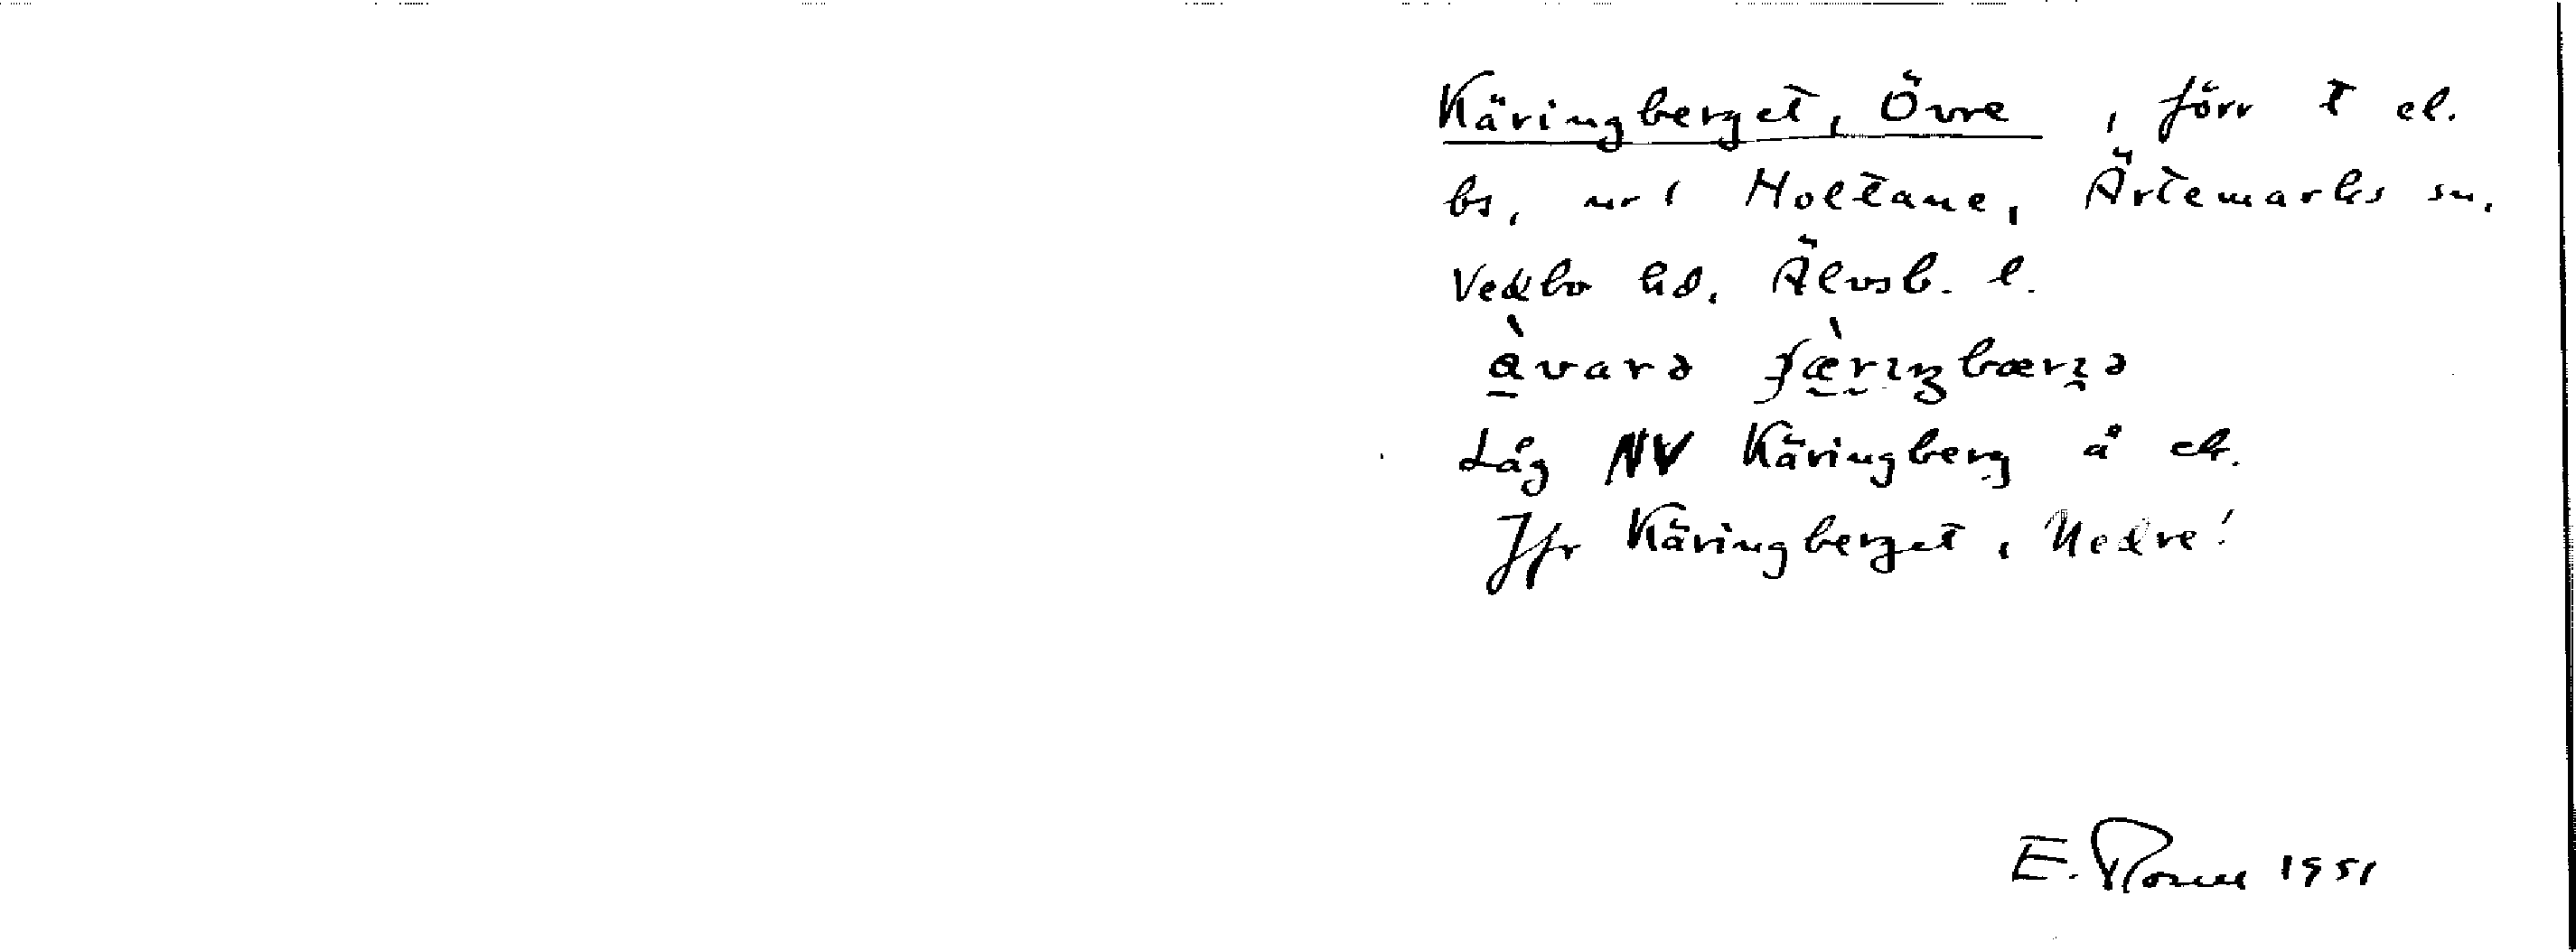 Käringberget, Övre, förr t el.
bs, nr 1 Holtane, Ärtemarks sn,
Vedbo hd, Älvsb. l.
Låg NV Käringberg å ek.
Jfr Käringberget, Nedre!
E. 1951